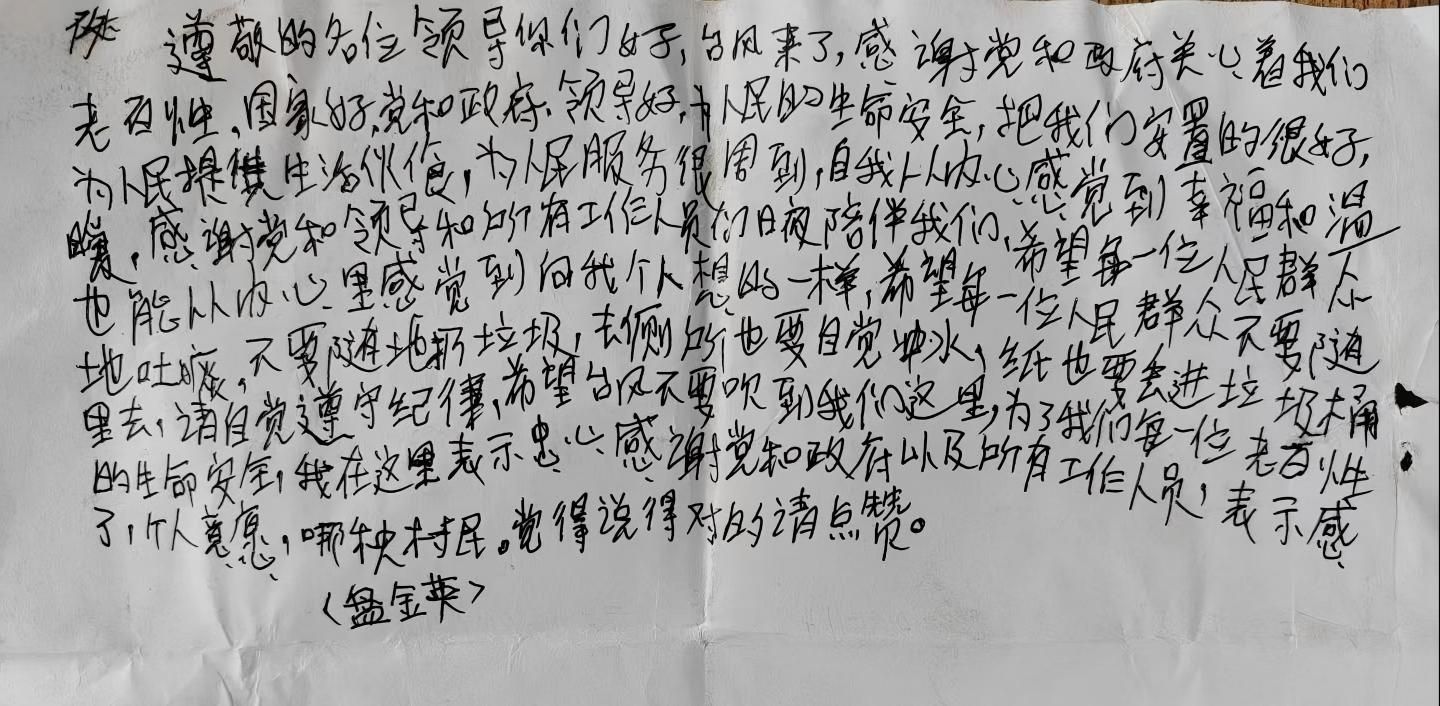 尊敬的各位领导你们好,台风来了,感谢党和政府关心着我们
老百性,国家好,党和政府、领导好,为人民的生命安全,把我们安置的很好,
为人民提供生活伙食,为人民服务很周到,自我从内心感觉到幸福和温
暖,感谢党和领导和所有工作人员们日夜陪伴我们,希望每一位人民群众
也能从内心里感觉到向我个人想的一样,希望每一位人民群众不要随
地吐痰,不要随地扔垃圾,去侧所也要自觉冲水,纸也要丢进垃圾桶
里去,请自觉遵守纪律,希望台风不要吹到我们这里,为了我们每一位老百性
的生命安全,我在这里表示忠心感谢党和政府以及所有工作人员,表示感
了,个人意愿,哪秧村民。觉得说得对的请点赞。
(盘金英)